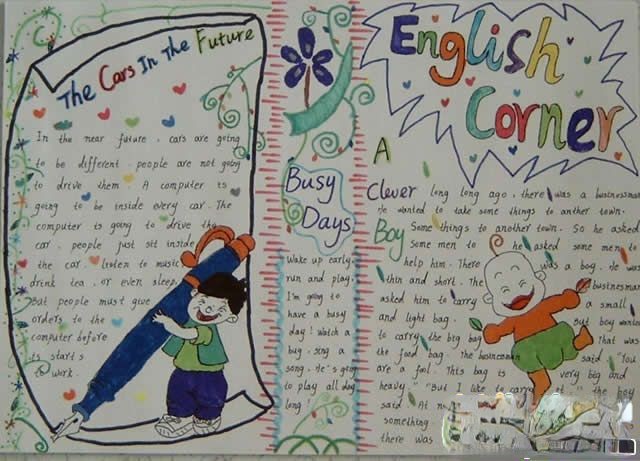 The Cars In The Future
In the near future . cars are going
to be different . people are not going
to drive them . A computer is
going to be inside every car . The
computer is going to drive the
car . people just sit inside
the car . listen to music
drink tea . or even sleep.
But people must give
orders to the
computer before
its starts
to work.
Busy
Days
Wake up early.
run and play.
I'm going to
have a busy
day ! Watch a
big . sing a
song . He's going
to play all day
long
English
Corner
A
Clever
Boy
long long ago . there was a businessma
He wanted to take some things to anther town.
Some things to another town. So he asked
some men to he asked some men to
help him . There was a boy . He was
thin and short . The businessman
asked him to carry a small
and light bag . But boy wante
to carry the big bag That was
the food bag . The businessman said "You
are a fool . This bag is very big and
heavy." "But I like to carry it " the boy
said . At
something
there was